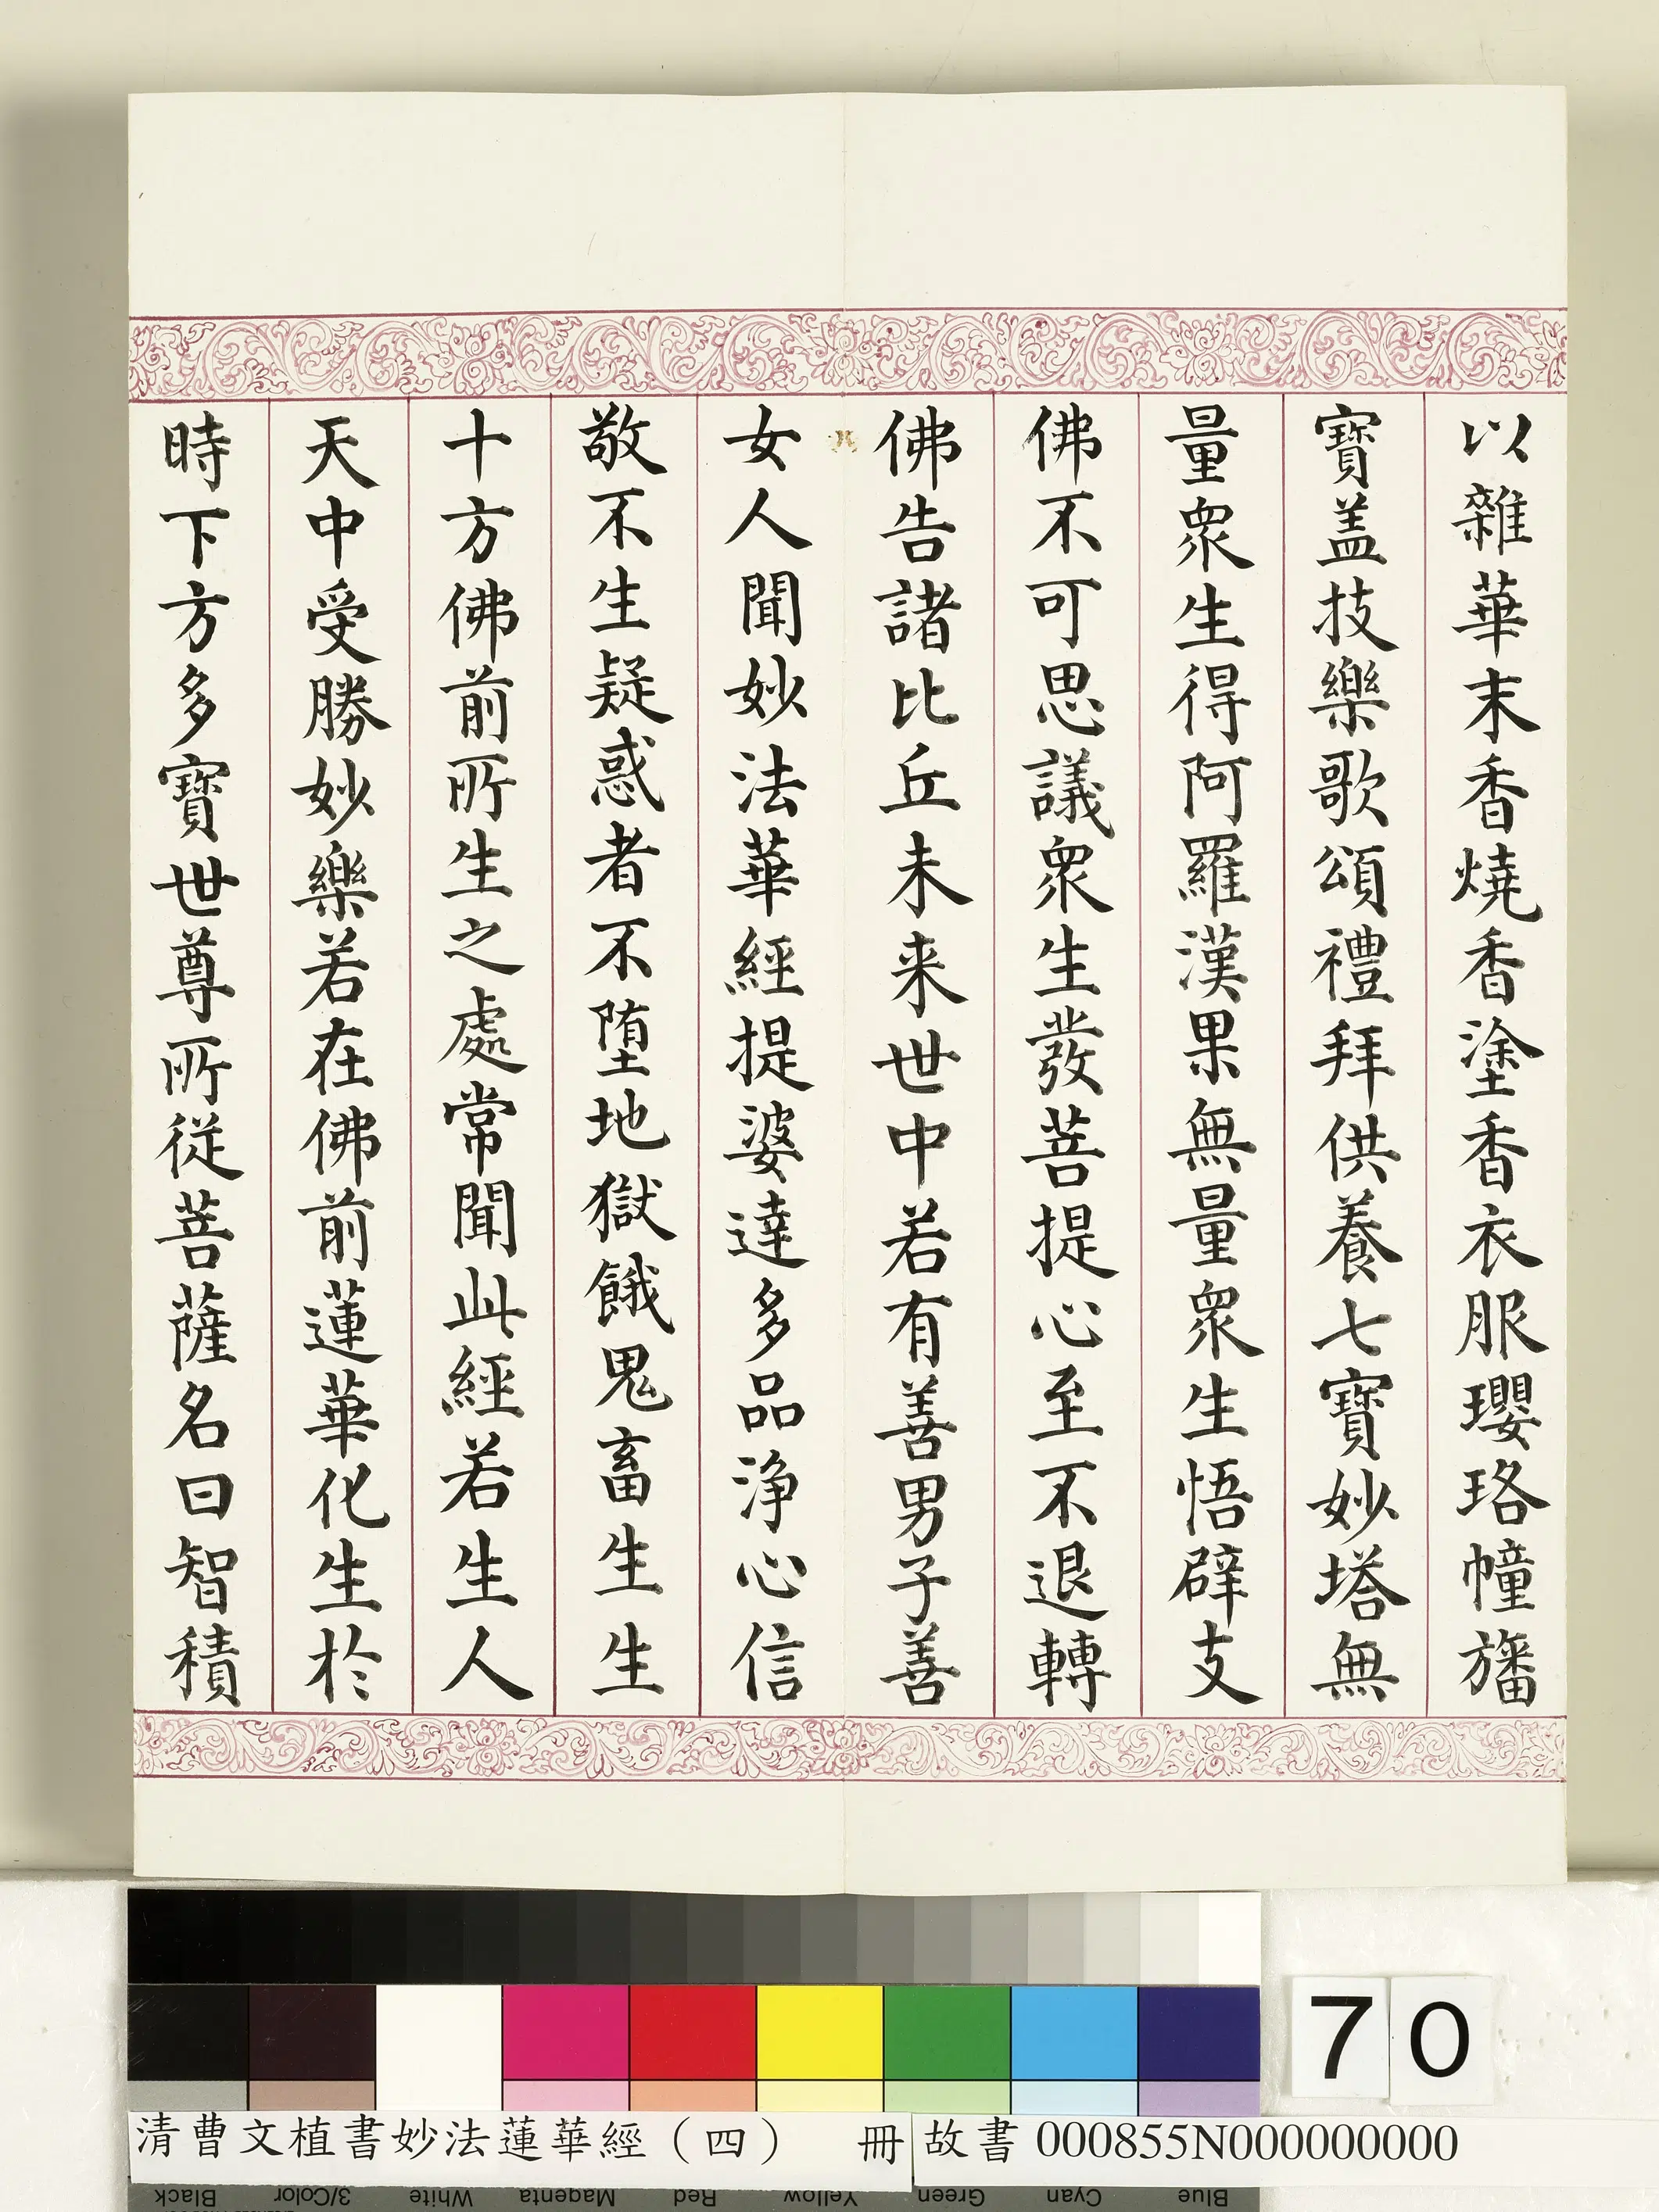 以雜華末香燒香塗香衣服瓔珞幢旛
寶盖技樂歌頌禮拜供養七寶妙塔無
量衆生得阿羅漢果無量衆生悟辟支
佛不可思議衆生發菩提心至不退轉
佛告諸比丘未来世中若有善男子善
女人聞妙法華經提婆達多品淨心信
敬不生疑惑者不墮地獄餓鬼畜生生
十方佛前所生之處常聞此經若生人
天中受勝妙樂若在佛前蓮華化生於
時下方多寶世尊所從菩薩名曰智積
70
清曹文植書妙法蓮華經（四） 冊 故書 000855N000000000
Black 3/Color White Magenta Red Yellow Green Cyan Blue